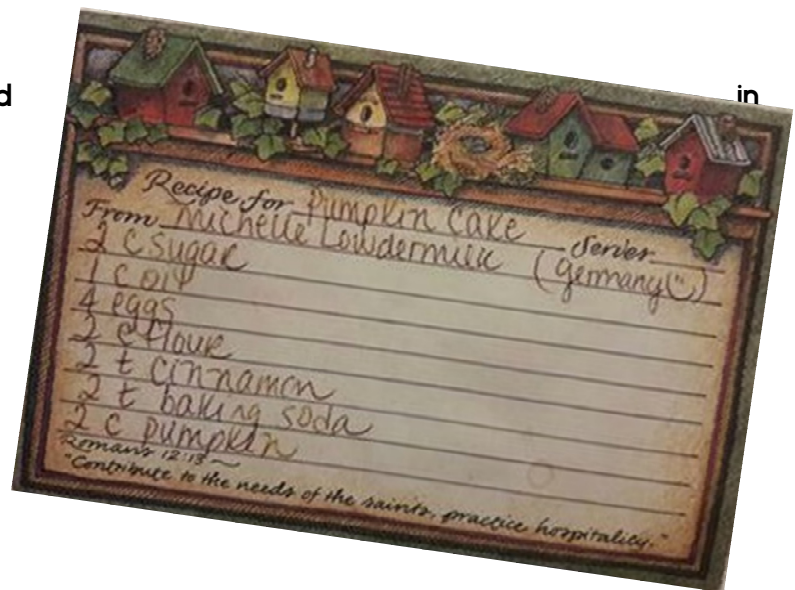 d
in
Recipe for Pumpkin Cake Serves
From Michelle Lowdermilk (Germany)
2 C sugar
1 C oil
4 eggs
2 c flour
2 t cinnamon
2 t baking soda
2 c pumpkin
Romans 12:13 ~
"Contribute to the needs of the saints, practice hospitality."